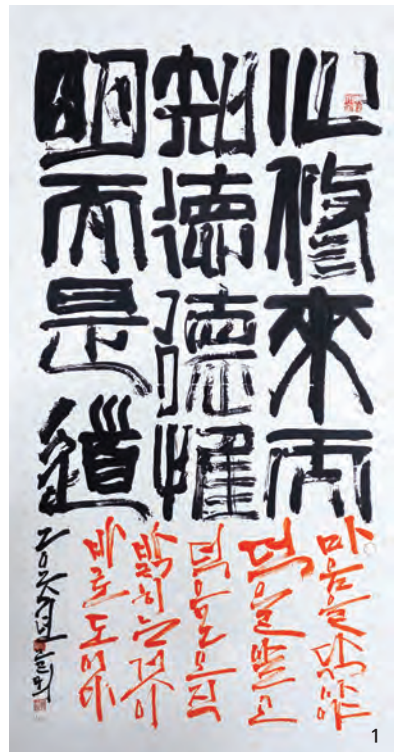 心修來而
知德德惟
明而是道
마음을 닦아야
덕을 알고
덕은 오직
밝히는 것이
바로 도이다
1